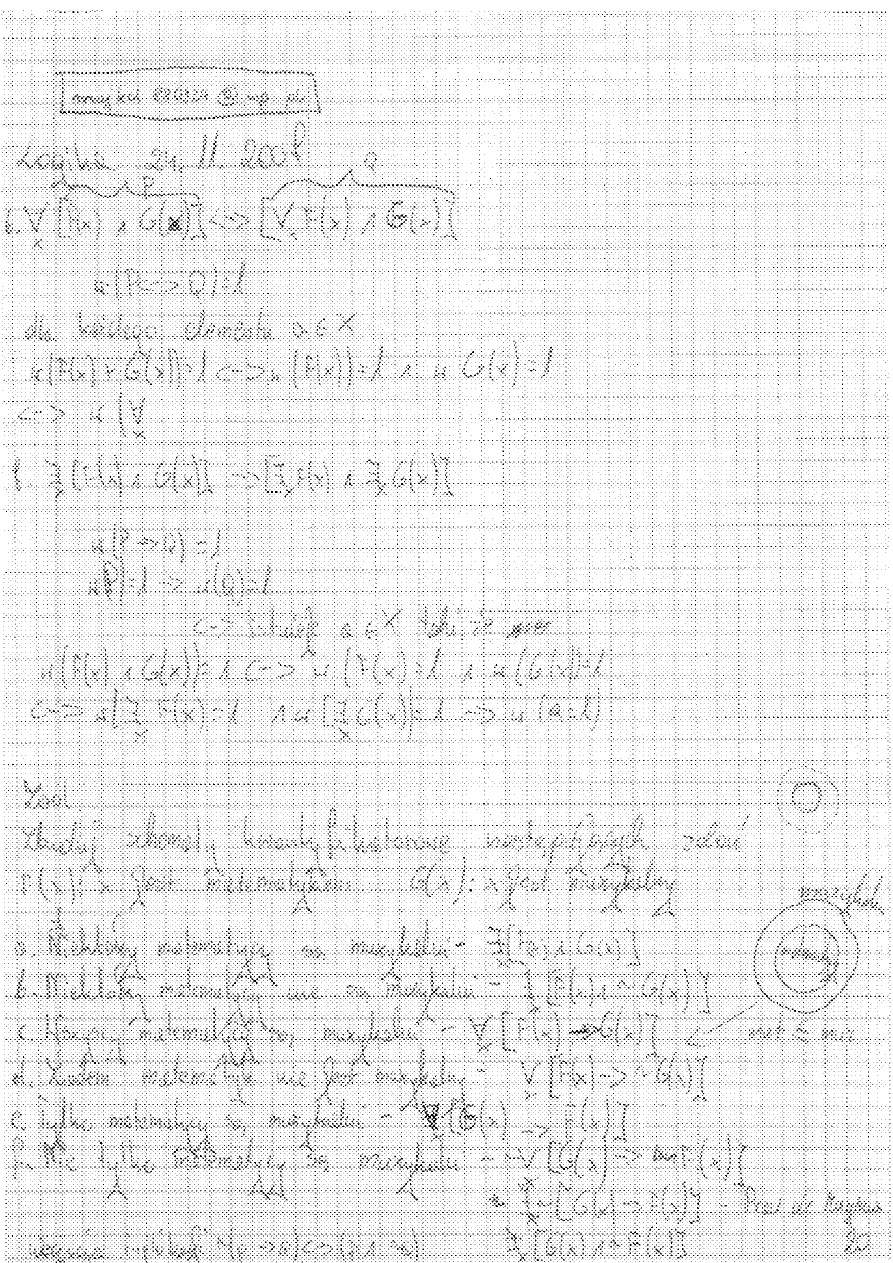 Logika 24. 11. 200
P Q
6. ∀x [F(x) ∧ G(x)] <-> [∀x F(x) ∧ G(x)]
u(P<->Q)=1
dla każdego elementu a ∈ X
u(F(x) ∧ G(x))=1 <-> u(F(x))=1 ∧ u G(x)=1
<-> u (∀x
∃x [F(x) ∧ G(x)] -> [∃x F(x) ∧ ∃x G(x)]
u(P->Q)=1
u(P)=1 -> u(Q)=1
<-> a ∈ X taki że
u(F(x) ∧ G(x))=1 <-> u(F(x)=1 ∧ u(G(x))=1
<-> u[∃x F(x)=1 ∧ u[∃x G(x)]=1 -> u(Q=1)
Zad
Zbuduj schematy kwantyfikatorowe następujących zdań
F(x): x jest matematykiem G(x): x jest muzykalny
muzykalni
a. Niektórzy matematycy są muzykalni - ∃x[F(x) ∧ G(x)]
b. Niektórzy matematycy nie są muzykalni - ∃x [F(x) ∧ ~G(x)]
c. Wszyscy matematycy są muzykalni - ∀x [F(x) -> G(x)]
d. Żaden matematyk nie jest muzykalny - ∀x [F(x) -> ~G(x)]
e. Tylko matematycy są muzykalni - ∀x [G(x) -> F(x)]
f. Nie tylko matematycy są muzykalni - ~∀x [G(x) -> F(x)]
∃x ~[G(x) -> F(x)] - Praw de Morgana
~(p -> q) <-> (p ∧ ~q) ∃x [G(x) ∧ ~F(x)]